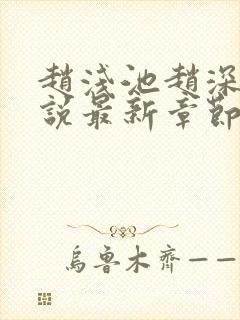 趙淺池趙深
說最新章節
烏魯木齊——